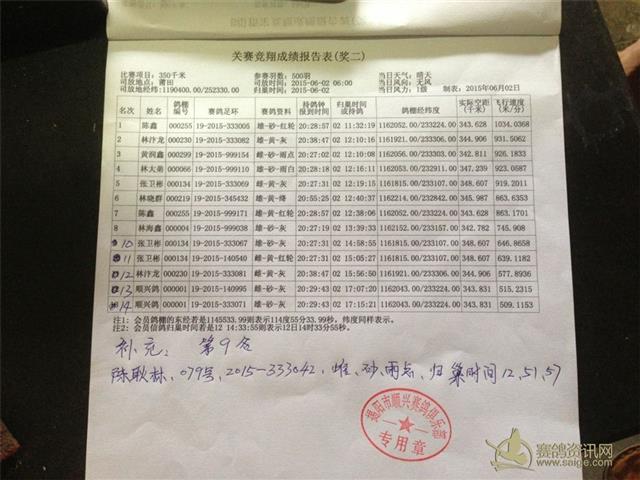 关赛竞翔成绩报告表(奖二)
比赛项目:350千米 参赛羽数:500羽 当日天气:晴天
司放地点:莆田 司放时间:2015-06-02 06:00 当日风向:无风
司放地经纬:1190400.00/252330.00 归巢时间:2015-06-02 当日风力:1级 制表:2015年06月02日
名次 姓名 鸽棚编号 赛鸽足环 赛鸽资料 持鸽钟报到时间 归巢时间或持鸽 鸽棚经纬度 实际空距(千米) 飞行速度(米/分)
1 陈鑫 000255 19-2015-333005 雄-砂-红轮 20:28:57 02 11:32:19 1162052.00/233224.00 343.628 1034.0368
2 林汴龙 000230 19-2015-333082 雄-黄-灰 20:38:47 02 12:10:16 1161921.00/233306.00 344.906 931.5062
3 黄润鑫 000299 19-2015-999154 雌-砂-雨点 20:27:02 02 12:10:08 1162056.00/233303.00 342.811 926.1833
4 林大弟 000066 19-2015-999110 雄-砂-雨白 20:28:18 02 12:16:11 1162053.00/232911.00 347.239 923.0587
5 张卫彬 000134 19-2015-333069 雌-黄-灰 20:27:31 02 12:19:15 1161815.00/233107.00 348.607 919.2011
6 林晓群 000219 19-2015-345432 雄-黄-绛 20:55:25 02 12:40:37 1162214.00/232840.00 345.957 863.6353
7 陈鑫 000255 19-2015-999171 雌-黄-红轮 20:28:57 02 12:38:06 1162052.00/233224.00 343.628 863.1701
8 林海鑫 000034 19-2015-999038 雄-砂-灰 20:27:19 02 13:39:33 1162152.00/233157.00 342.782 745.908
10 张卫彬 000134 19-2015-333067 雄-砂-灰 20:27:31 02 14:58:55 1161815.00/233107.00 348.607 646.8658
11 张卫彬 000134 19-2015-140540 雌-黄-红轮 20:27:31 02 15:05:27 1161815.00/233107.00 348.607 639.1182
12 林汴龙 000230 19-2015-333081 雄-黄-灰 20:38:47 02 15:56:50 1161921.00/233306.00 344.906 577.8936
13 顺兴鸽 000001 19-2015-140995 雌-砂-灰 20:29:43 02 17:07:20 1162043.00/233224.00 343.831 515.2315
14 顺兴鸽 000001 19-2015-333071 雌-砂-灰 20:29:43 02 17:15:21 1162043.00/233224.00 343.831 509.1153
注1:会员鸽棚的东经若是1145533.99则表示114度55分33.99秒,纬度同样表示。
注2:会员信鸽归巢时间若是12 14:33:55则表示12日14时33分55秒。
补充: 第9名
陈耿林、079号、2015-333042、雌、砂、雨点、归巢时间12,51,57
揭阳市顺兴赛鸽俱乐部
专用章
赛鸽资讯网
www.saige.com